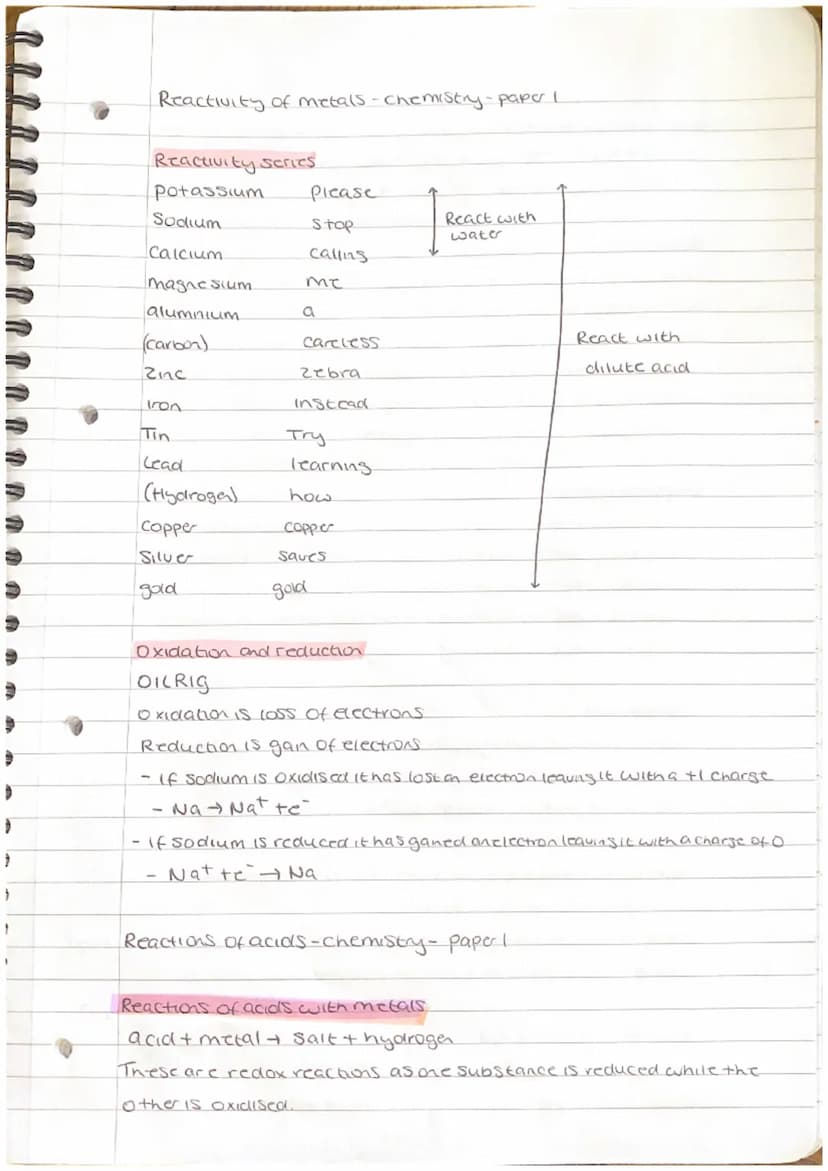 Reactivity of metals - chemistry - paper 1
Reactivity series
potassium please
Sodium stop
Calcium calling
magnesium me
aluminium a
(carbon) careless
Zinc zebra
iron instead
Tin Try
Lead learning
(Hydrogen) how
Copper copper
Silver saves
gold gold
React with
water
React with
dilute acid
Oxidation and reduction
OILRIg
Oxidation is loss of electrons
Reduction is gain of electrons
- if sodium is oxidised it has lost an electron leaving it with a +1 charge
- Na → Na⁺ + e⁻
- If sodium is reduced it has gained an electron leaving it with a charge of 0
- Na⁺ + e⁻ → Na
Reactions of acids - chemistry - paper 1
Reactions of acids with metals
acid + metal → salt + hydrogen
These are redox reactions as one substance is reduced while the
other is oxidised.